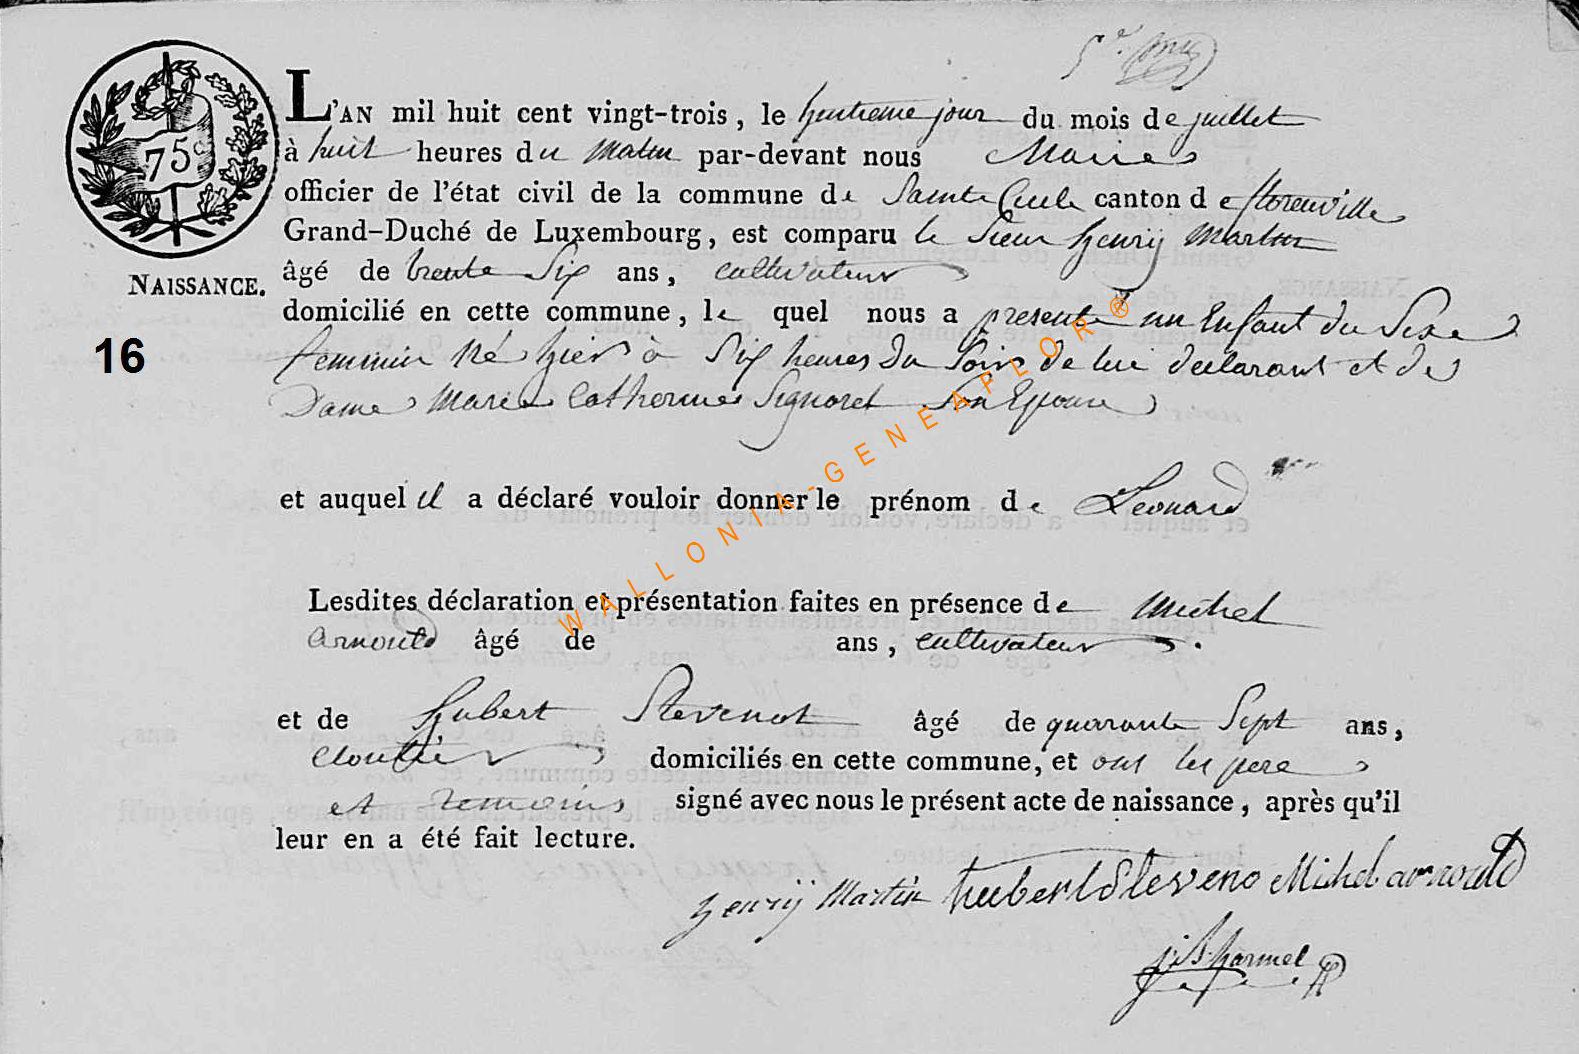 5e
75c
L'AN mil huit cent vingt-trois, le huitieme jour du mois de juillet
à huit heures du matin par-devant nous Maire
officier de l'état civil de la commune de Sainte Cecile canton de florenville
Grand-Duché de Luxembourg, est comparu le Sieur henrij Martin
NAISSANCE.
âgé de trente Six ans, cultivateur
domicilié en cette commune, le quel nous a presenté un Enfant du Sexe
16
feminin né hier à Six heures du Soir de lui declarant et de
Dame Marie Catherine Signoret Son Epouse
et auquel il a déclaré vouloir donner le prénom de Leonard
Lesdites déclaration et présentation faites en présence de Michel
arnould âgé de ans, cultivateur.
et de hubert Stevenot âgé de quarante Sept ans,
cloutier domiciliés en cette commune, et ont les pere
et temoins signé avec nous le présent acte de naissance, après qu'il
leur en a été fait lecture.
henrij Martin hubert Steveno Michel arnould
j:B: harmel
WALLONIA-GENEAFLOR®